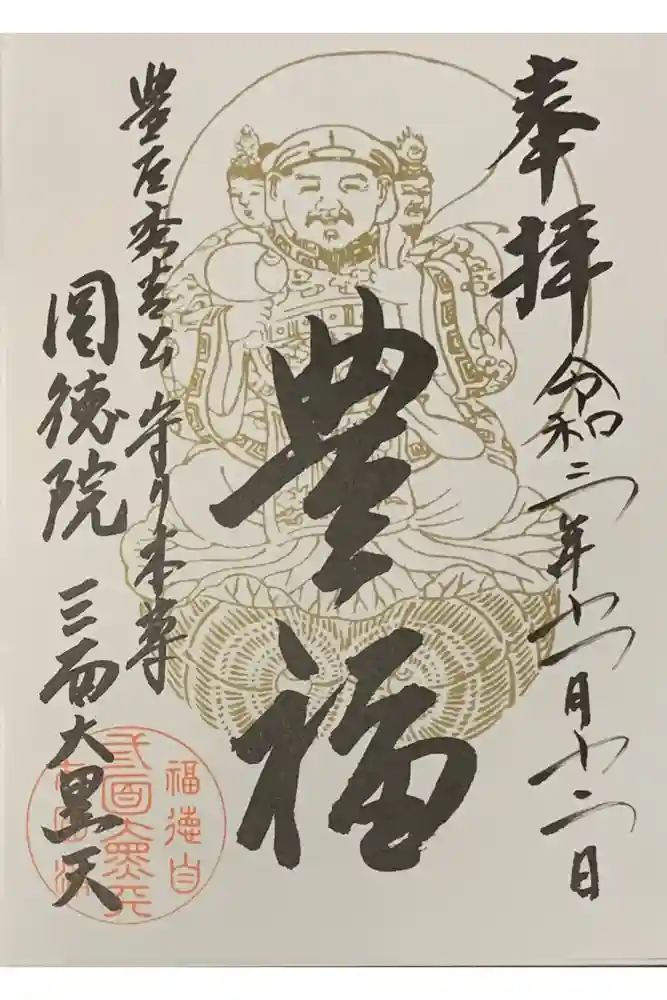 奉拝
令和三年十一月十二日
豊福
豊臣秀吉公 守り本尊
圓徳院 三面大黒天
福徳自
三面大黒天